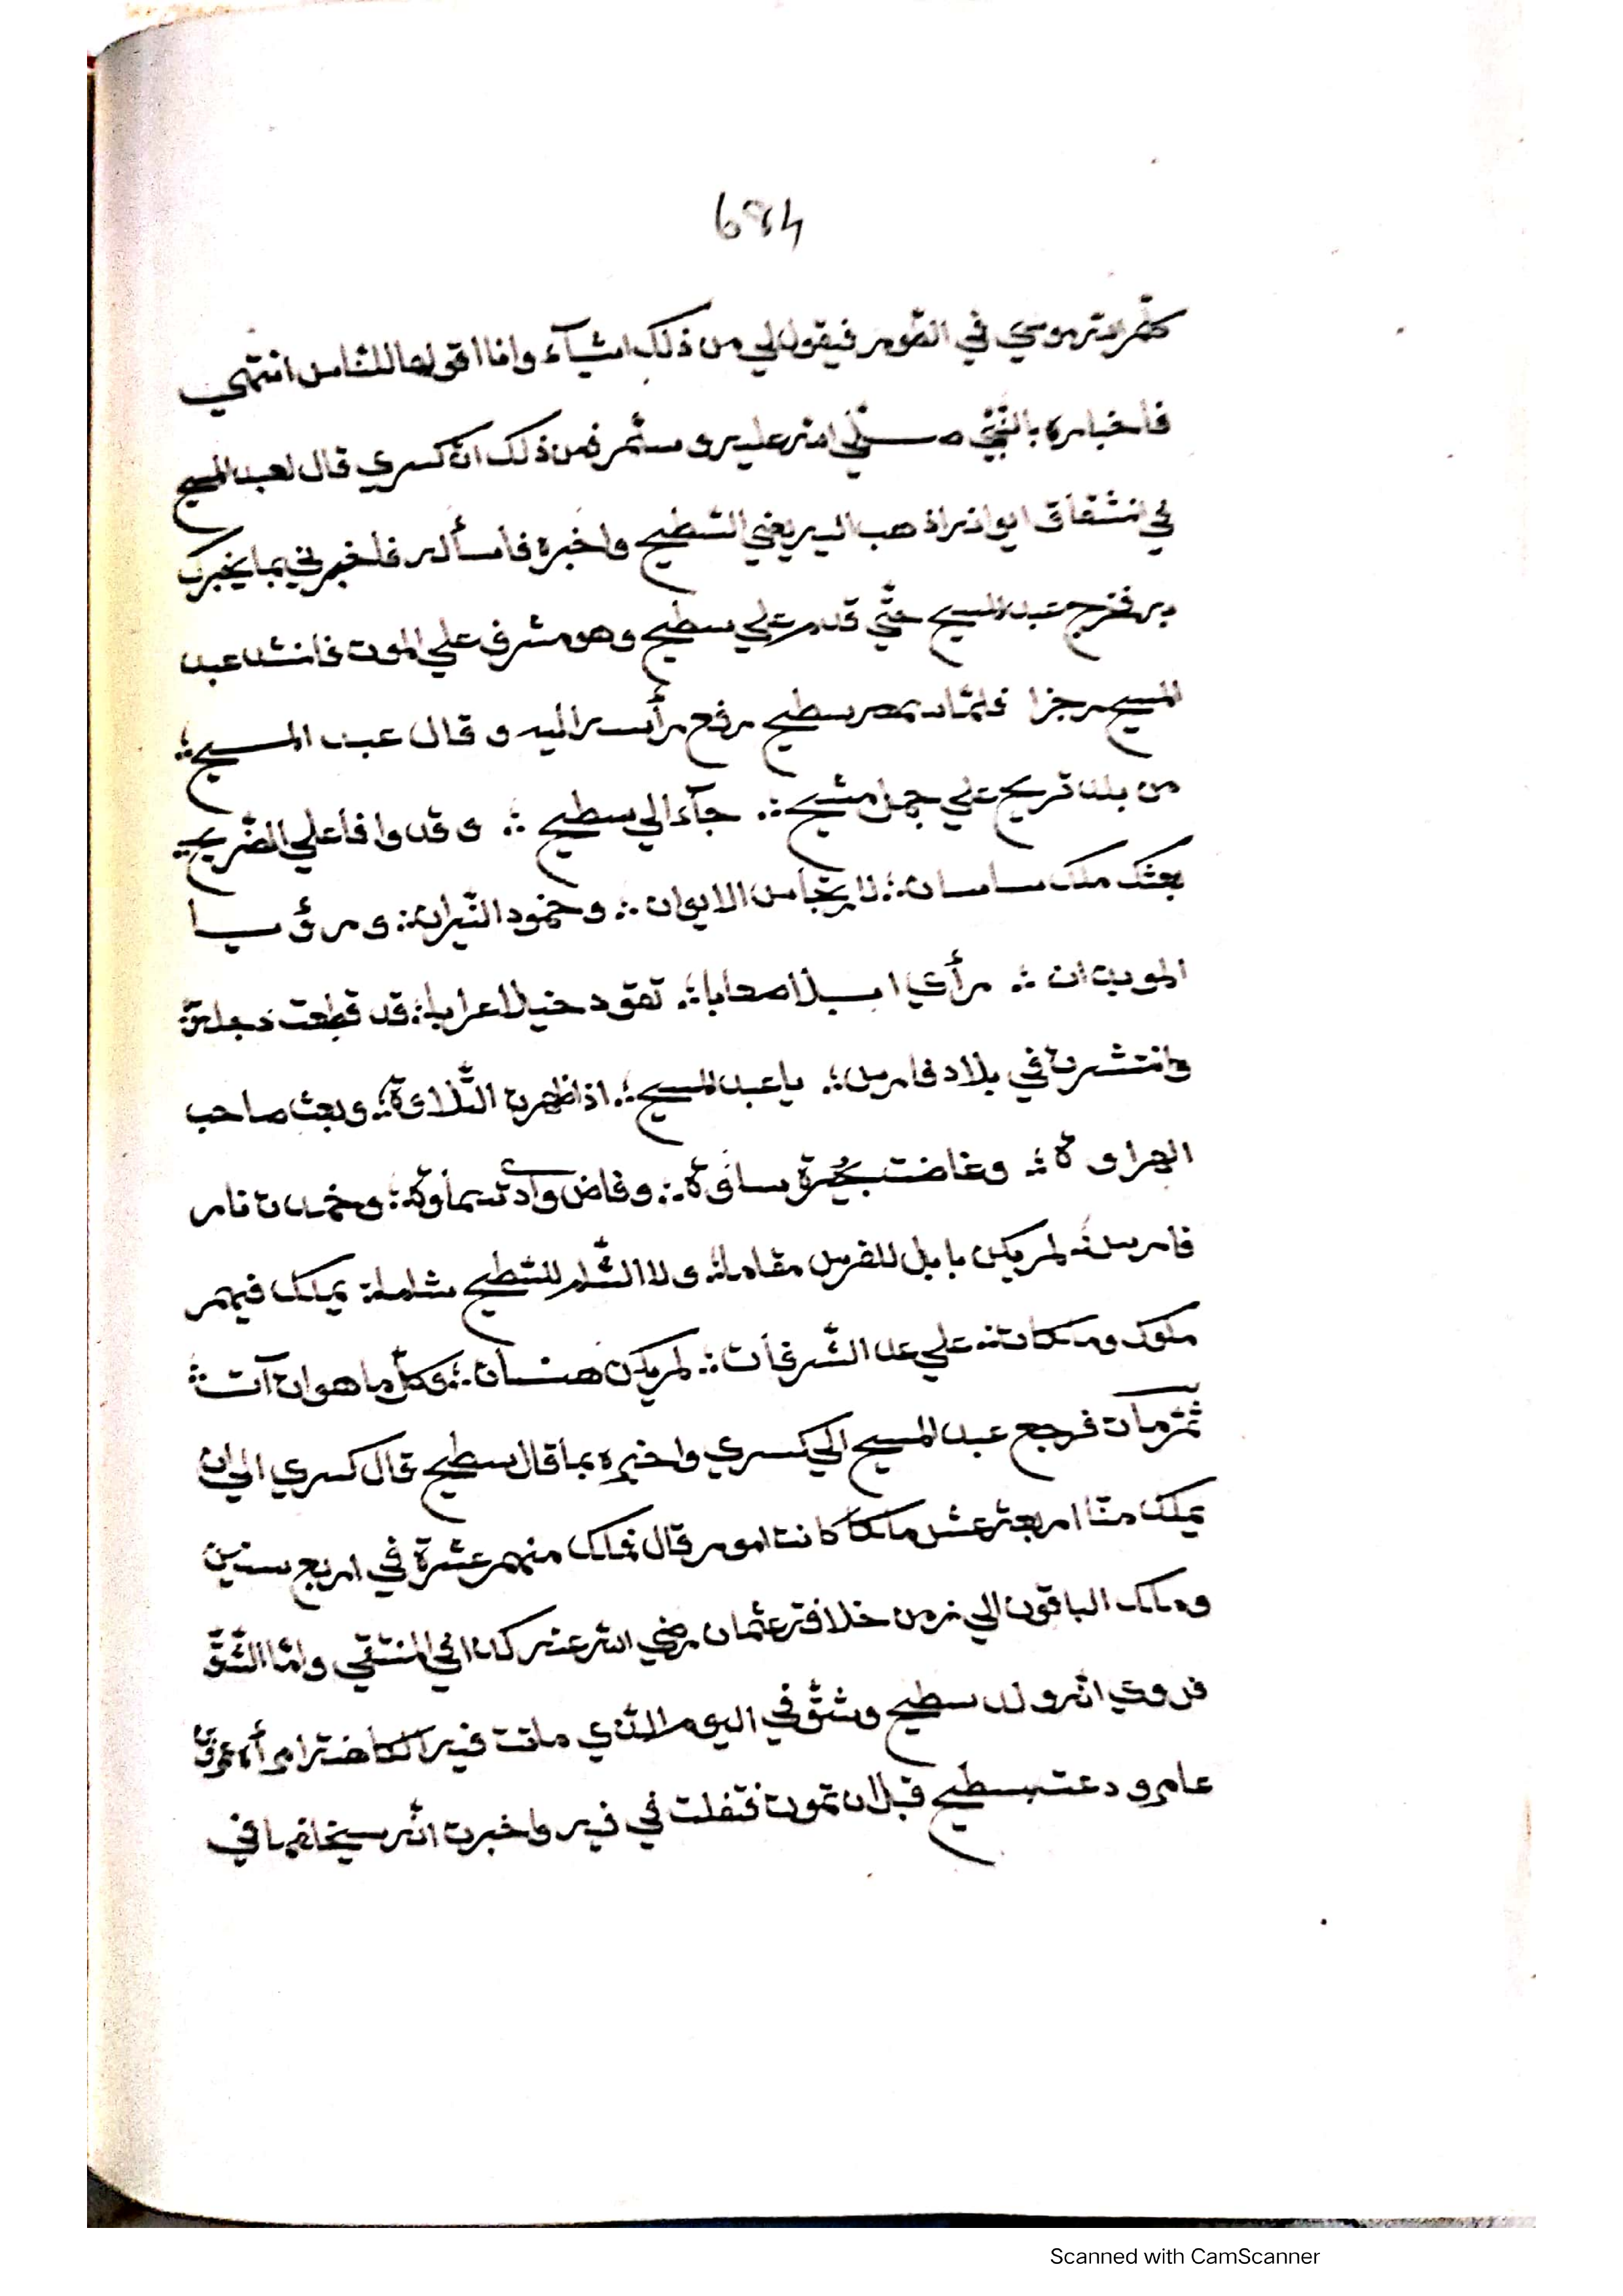 684
كلم الله موسى في الطور فيقول لي من ذلك اشيآء وانا اقولها للناس انتهي
فاخباره بالنّبيّ صلّي الله عليه وسلّم فمن ذلك انّ كسري قال لعبد المسيح
في انشقاق ايوانه اذهب اليه يعني السّطيح واخبره فاسأله فاخبرني بما يخبرك
به فخرج عبد المسيح حتّي قدم علي سطيح وهو مشرف علي الموت فانشد عبد
المسيح رجزا فلمّا سمعه سطيح رفع رأسه اليه و قال عبد المسيح ؛
من بلد نزيح علي جمل مشيح ؛. جآء الي سطيح ؛. و قد وافا علي الضّريح
بعثك ملك ساسان ؛ لارتجاس الايوان ؛. و خمود النّيران ؛ و رؤيا
الموبدان ؛. رأي ابلا صعابا ؛. تقود خيلا عرابا ؛ قد قطعت دجلة
وانتشرت في بلاد فارس ؛. يا عبد المسيح ؛. اذا ظهرت التّلاوة ؛ وبعث صاحب
الهراوة ؛. وغاضت بحيرة ساوة ؛. وفاض وادي سماوة ؛ وخمدت نار
فارس ؛ لم يكن بابل للفرس مقاما ؛ ولا الشّام للسّطيح شاما ؛ يملك فيهم
ملوك وملكات ؛ علي عدد الشّرفات ؛. لم يكن هنسان ؛. وكلّ ما هو ات آت ؛
ثمّ مات فرجع عبد المسيح الي كسري واخبره بما قال سطيح قال كسري الي ان
يملك منّا اربعة عشر ملكا كانت امور قال فملك منهم عشرة في اربع سنين
وملك الباقون الي زمن خلافة عثمان رضي الله عنه كذا في المنتقي وامّا الشّقّ
فروي انّه ولد سطيح وشقّ في اليوم الّذي ماتت فيه الكاهنة امرأة عمرو بن
عامر و دعت بسطيح قبل ان تموت فتفلت في فيه واخبرت انّه سيخلفها في
Scanned with CamScanner